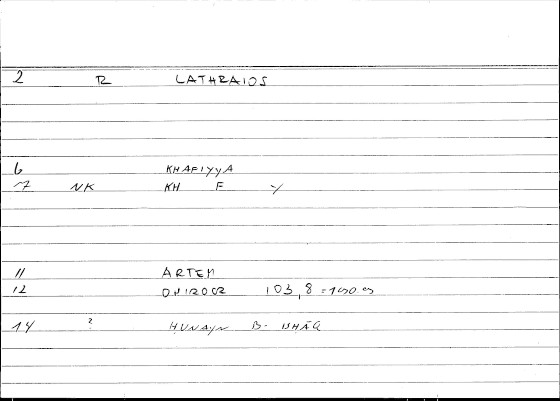 2 R LATHRAIOS
6 KHAFIYYA
7 NK KH F Y
11 ARTEM
12 ONIROCR 103,8 =190
14 ? HUNAYN B. ISHĀQ